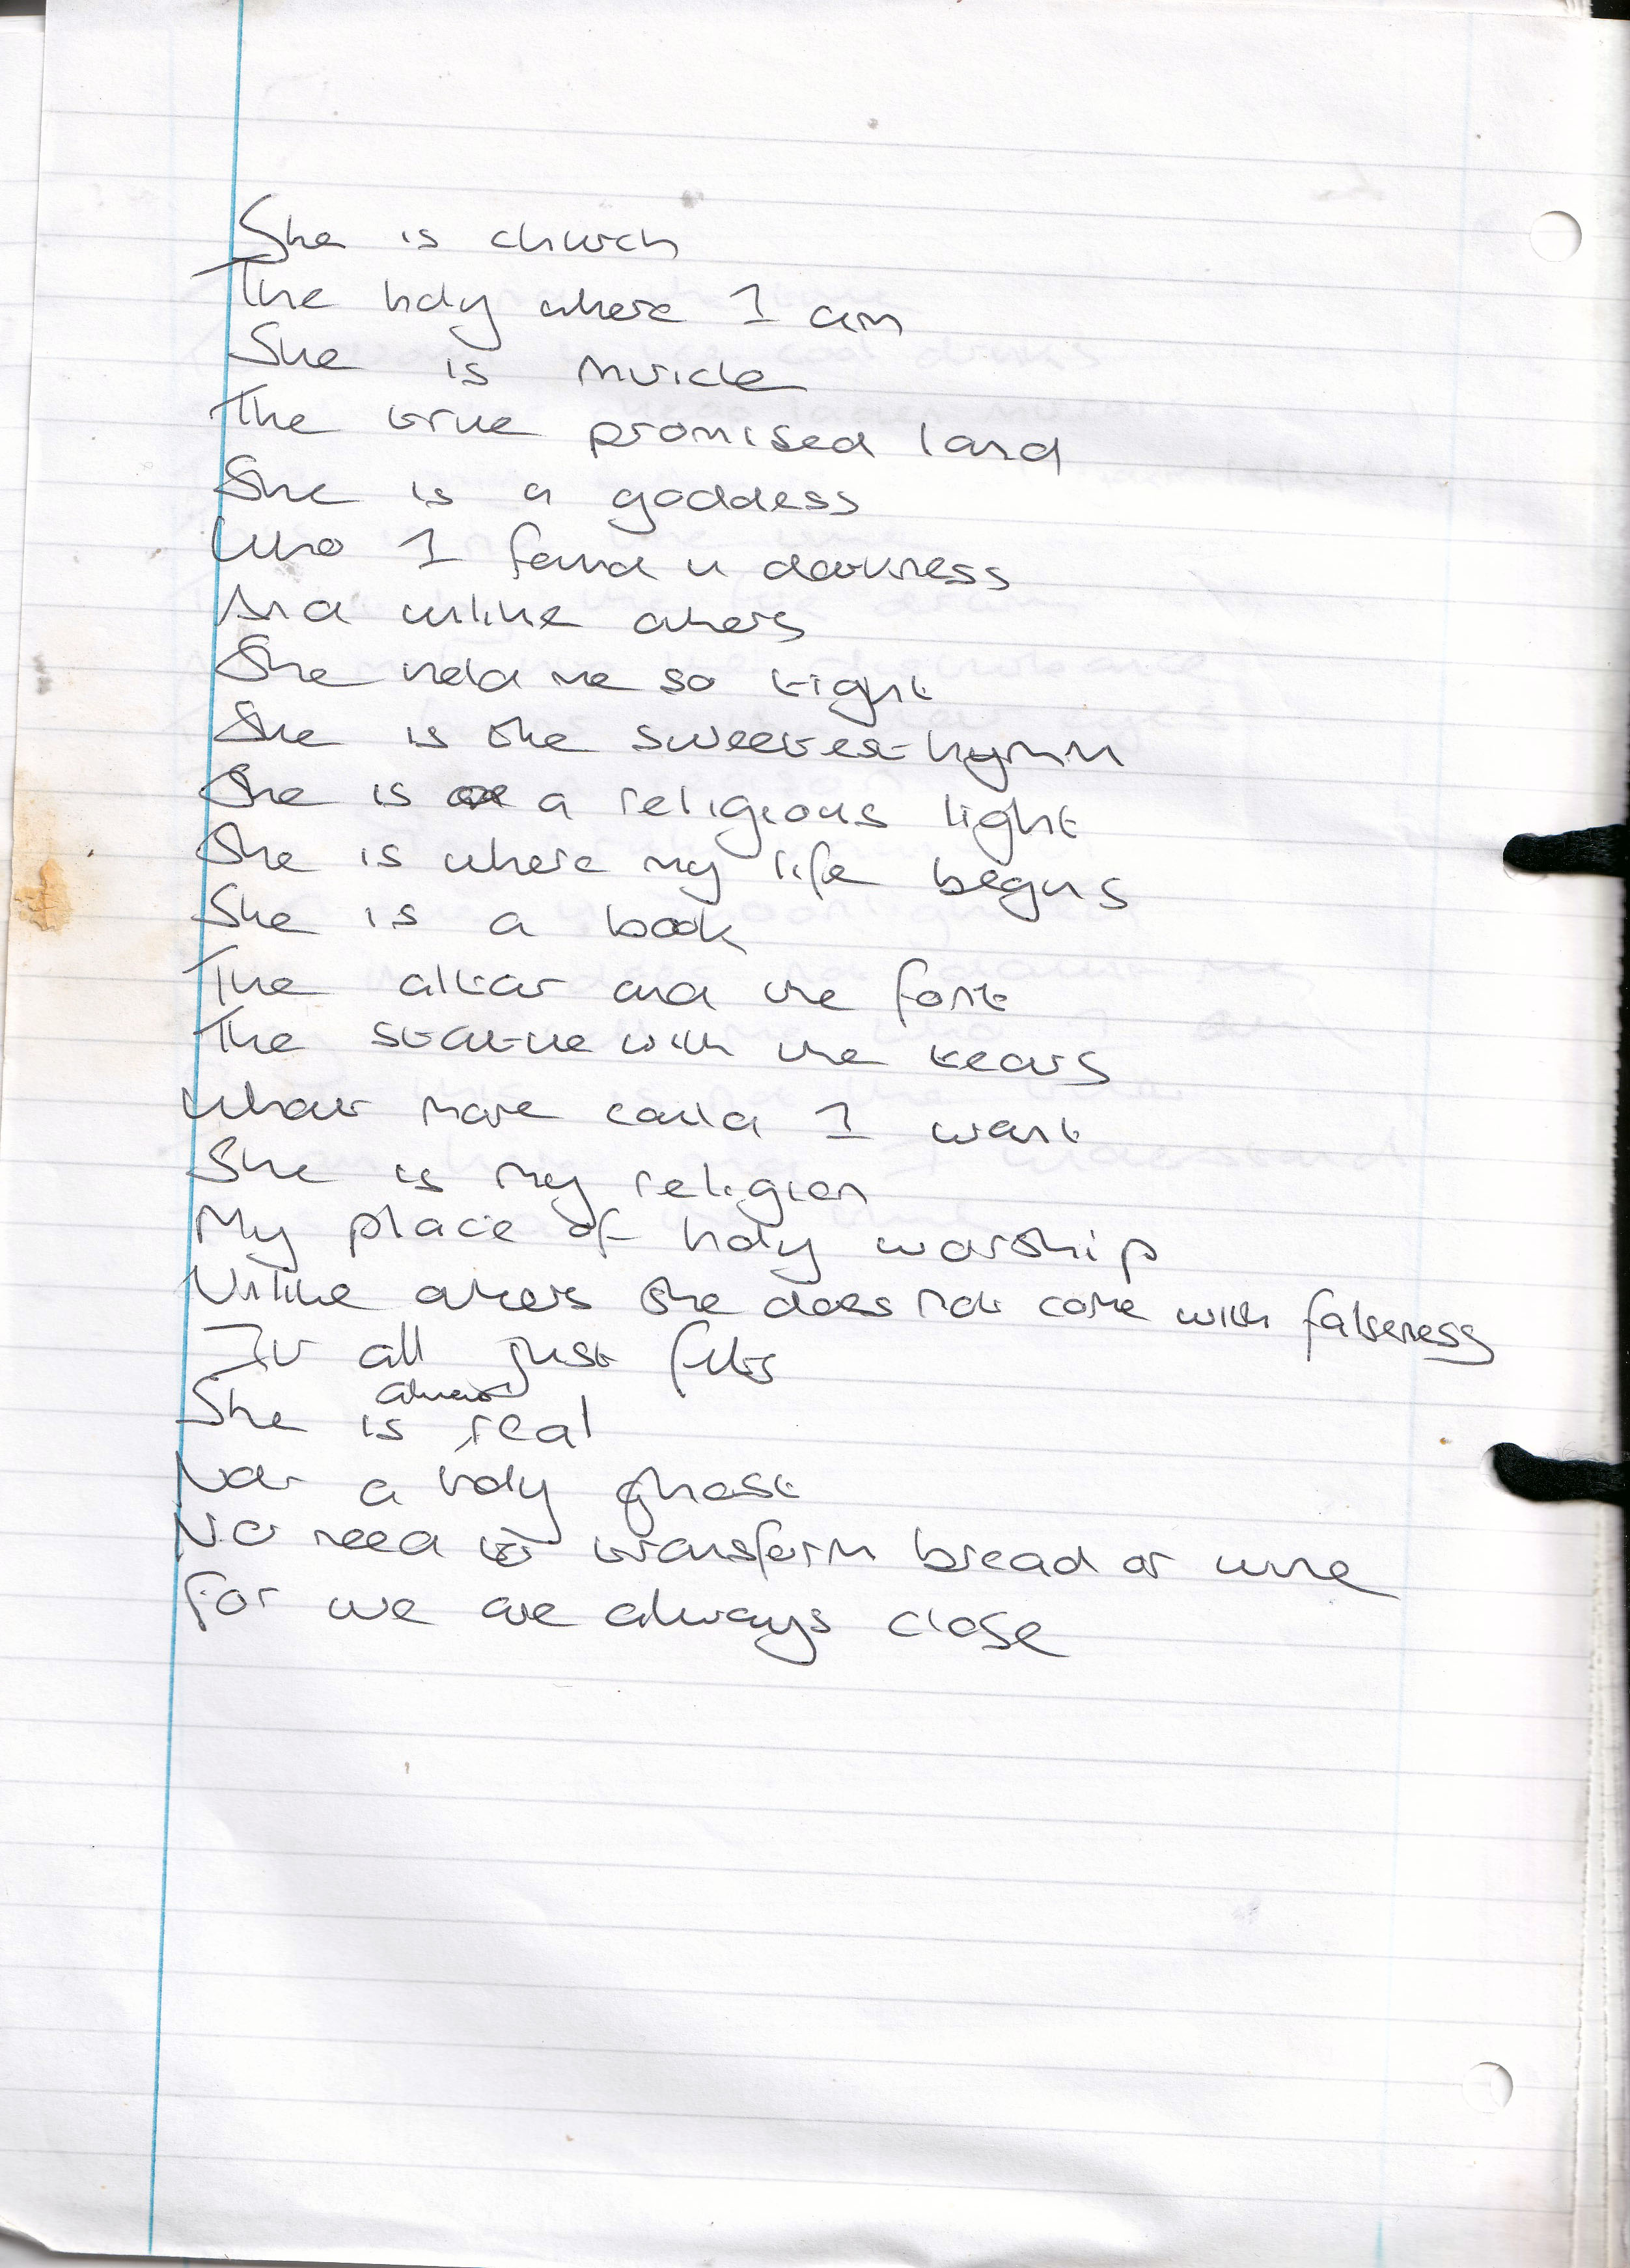 She is church
The holy where I am
She is miracle
The true promised land
She is a goddess
Who I found in darkness
And unlike others
She held me so tight
She is the sweetest hymn
She is a religious light
She is where my life begins
She is a book
The altar and the font
The statue with the tears
What more could I want
She is my religion
My place of holy worship
Unlike others she does not come with falseness
It all just fits
She is always real
Not a holy ghost
No need to transform bread or wine
For we are always close